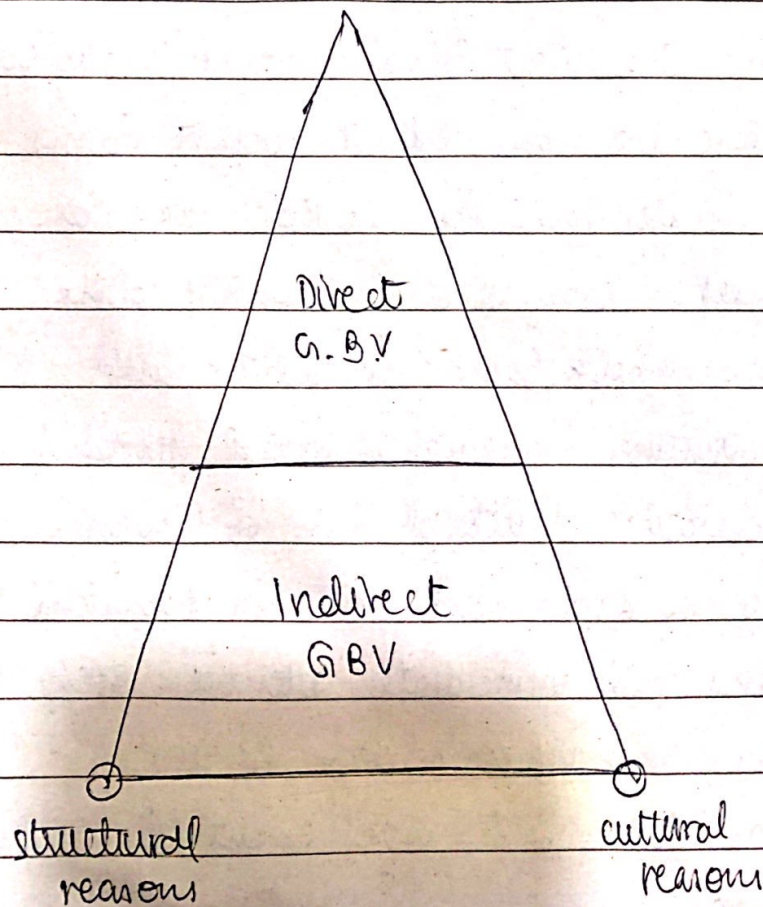 Direct
G.B.V
Indirect
GBV
structural
reasons
cultural
reasons